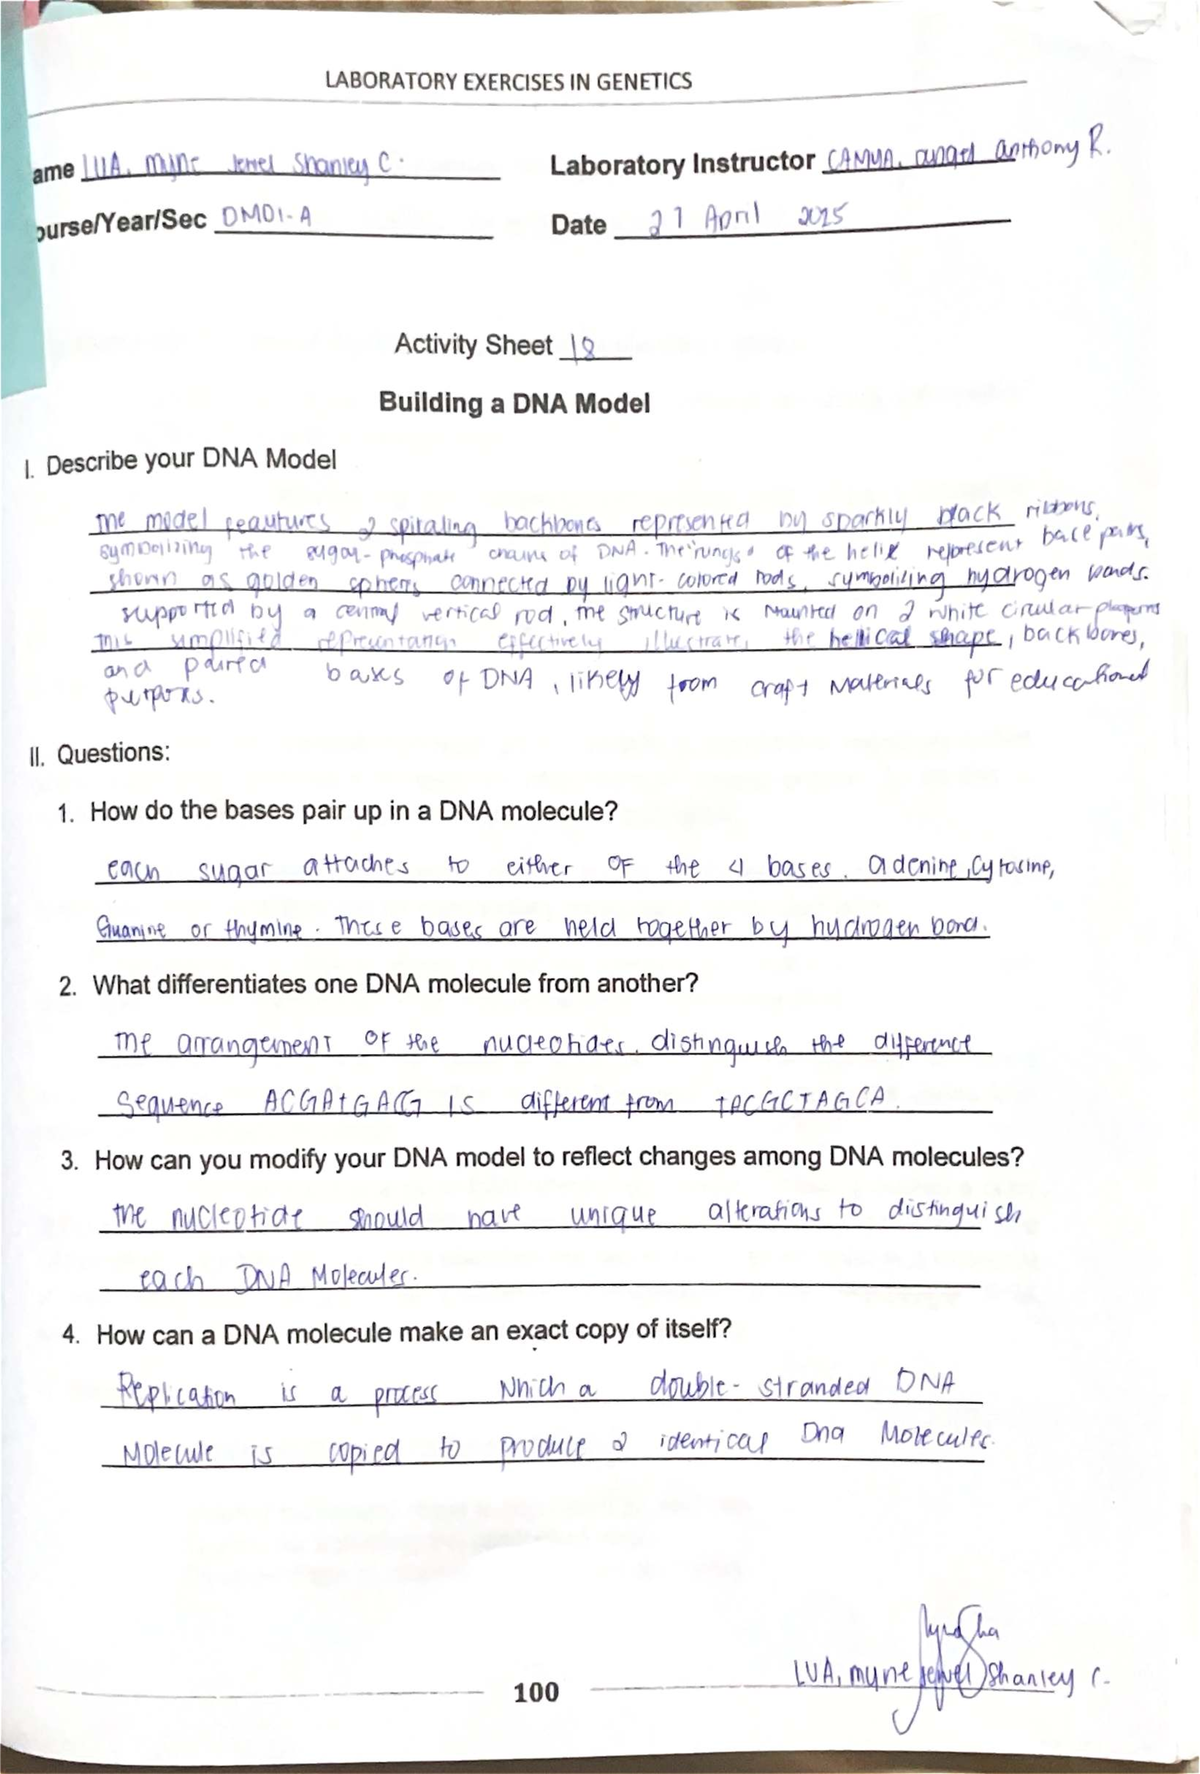 LABORATORY EXERCISES IN GENETICS
ame LUA, Myne Jewel Shanley C.
Laboratory Instructor CAMUA, angel anthony R.
ourse/Year/Sec DMD1-A
Date 27 April 2025
Activity Sheet 18
Building a DNA Model
I. Describe your DNA Model
The model feautures 2 spiraling backbones represented by sparkly black ribbons,
symbolizing the sugar-phosphate chains of DNA. The "rungs" of the helix represent base pairs,
shown as golden spheres connected by light-colored rods, symbolizing hydrogen bonds.
supported by a central vertical rod, the structure is Mounted on 2 white circular platforms
This simplified representation effectively illustrates the helical shape, backbones,
and paired bases of DNA, likely from craft Materials for educational
purposes.
II. Questions:
1. How do the bases pair up in a DNA molecule?
each sugar attaches to either OF the 4 bases. adenine, Cytosine,
Guanine or thymine. These bases are held together by hydrogen bond.
2. What differentiates one DNA molecule from another?
The arrangement OF the nucleotides. distinguish the difference
Sequence ACGAtGACG IS different from TACGCTAGCA.
3. How can you modify your DNA model to reflect changes among DNA molecules?
the nucleotide should have unique alterations to distinguish
each DNA Molecules.
4. How can a DNA molecule make an exact copy of itself?
Replication is a process Which a double-stranded DNA
Molecule is copied to produce 2 identical Dna Molecules.
LUA, myne jewel Shanley C.
100